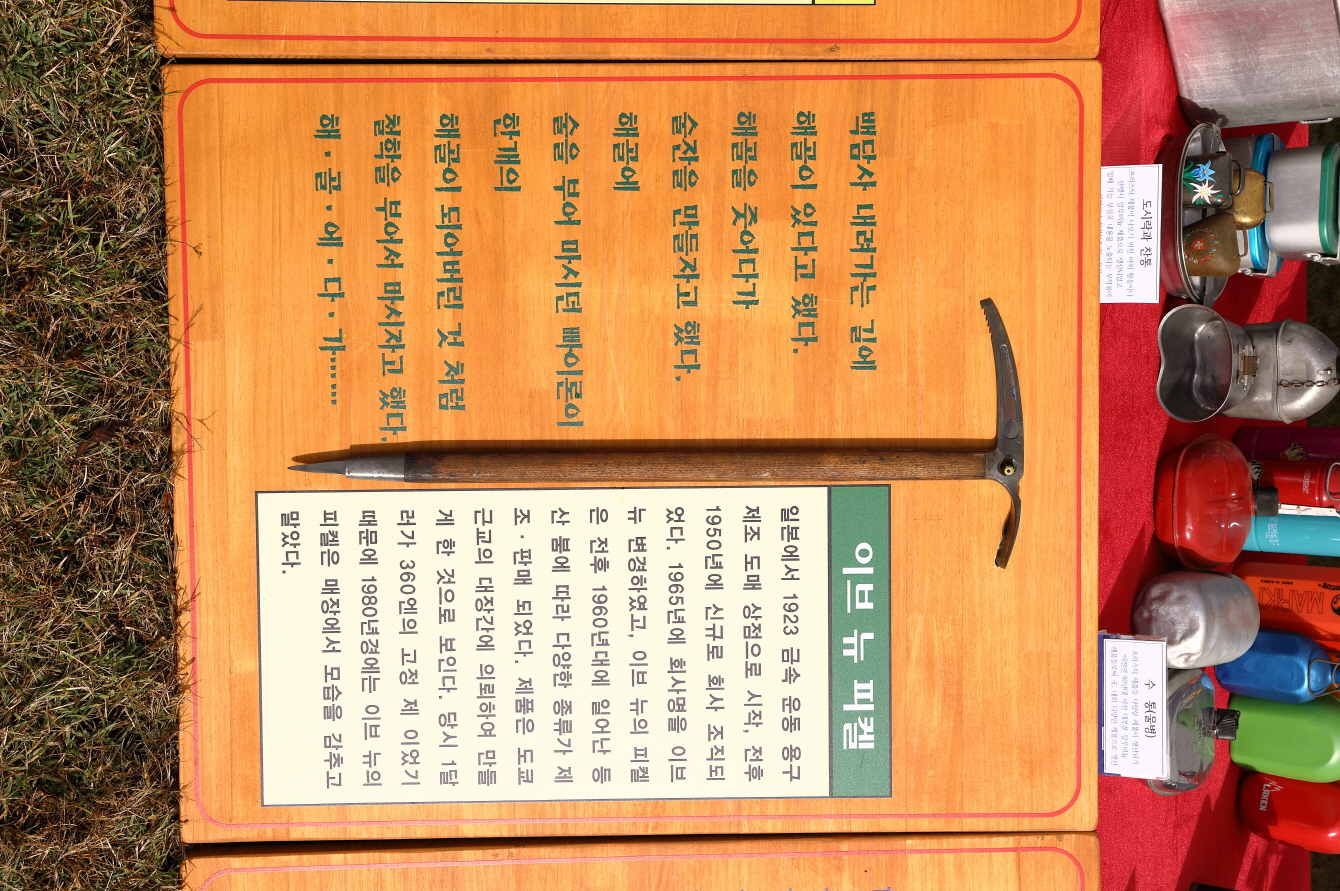 백담사 내려가는 길에
해골이 있다고 했다.
해골을 줏어다가
술잔을 만들자고 했다.
해골에
술을 부어 마시던 빠이론이
한개의
해골이 되어버린 것 처럼
철학을 부어서 마시자고 했다.
해·골·에·다·가……
이브 뉴 피켈
일본에서 1923 금속 운동 용구
제조 도매 상점으로 시작, 전후
1950년에 신규로 회사 조직되
었다. 1965년에 회사명을 이브
뉴 변경하였고, 이브 뉴의 피켈
은 전후 1960년대에 일어난 등
산 붐에 따라 다양한 종류가 제
조·판매 되었다. 제품은 도쿄
근교의 대장간에 의뢰하여 만들
게 한 것으로 보인다. 당시 1달
러가 360엔의 고정 제 이었기
때문에 1980년경에는 이브 뉴의
피켈은 매장에서 모습을 감추고
말았다.
도시락과 찬통
수 통(물병)
MARKI
LAKEN